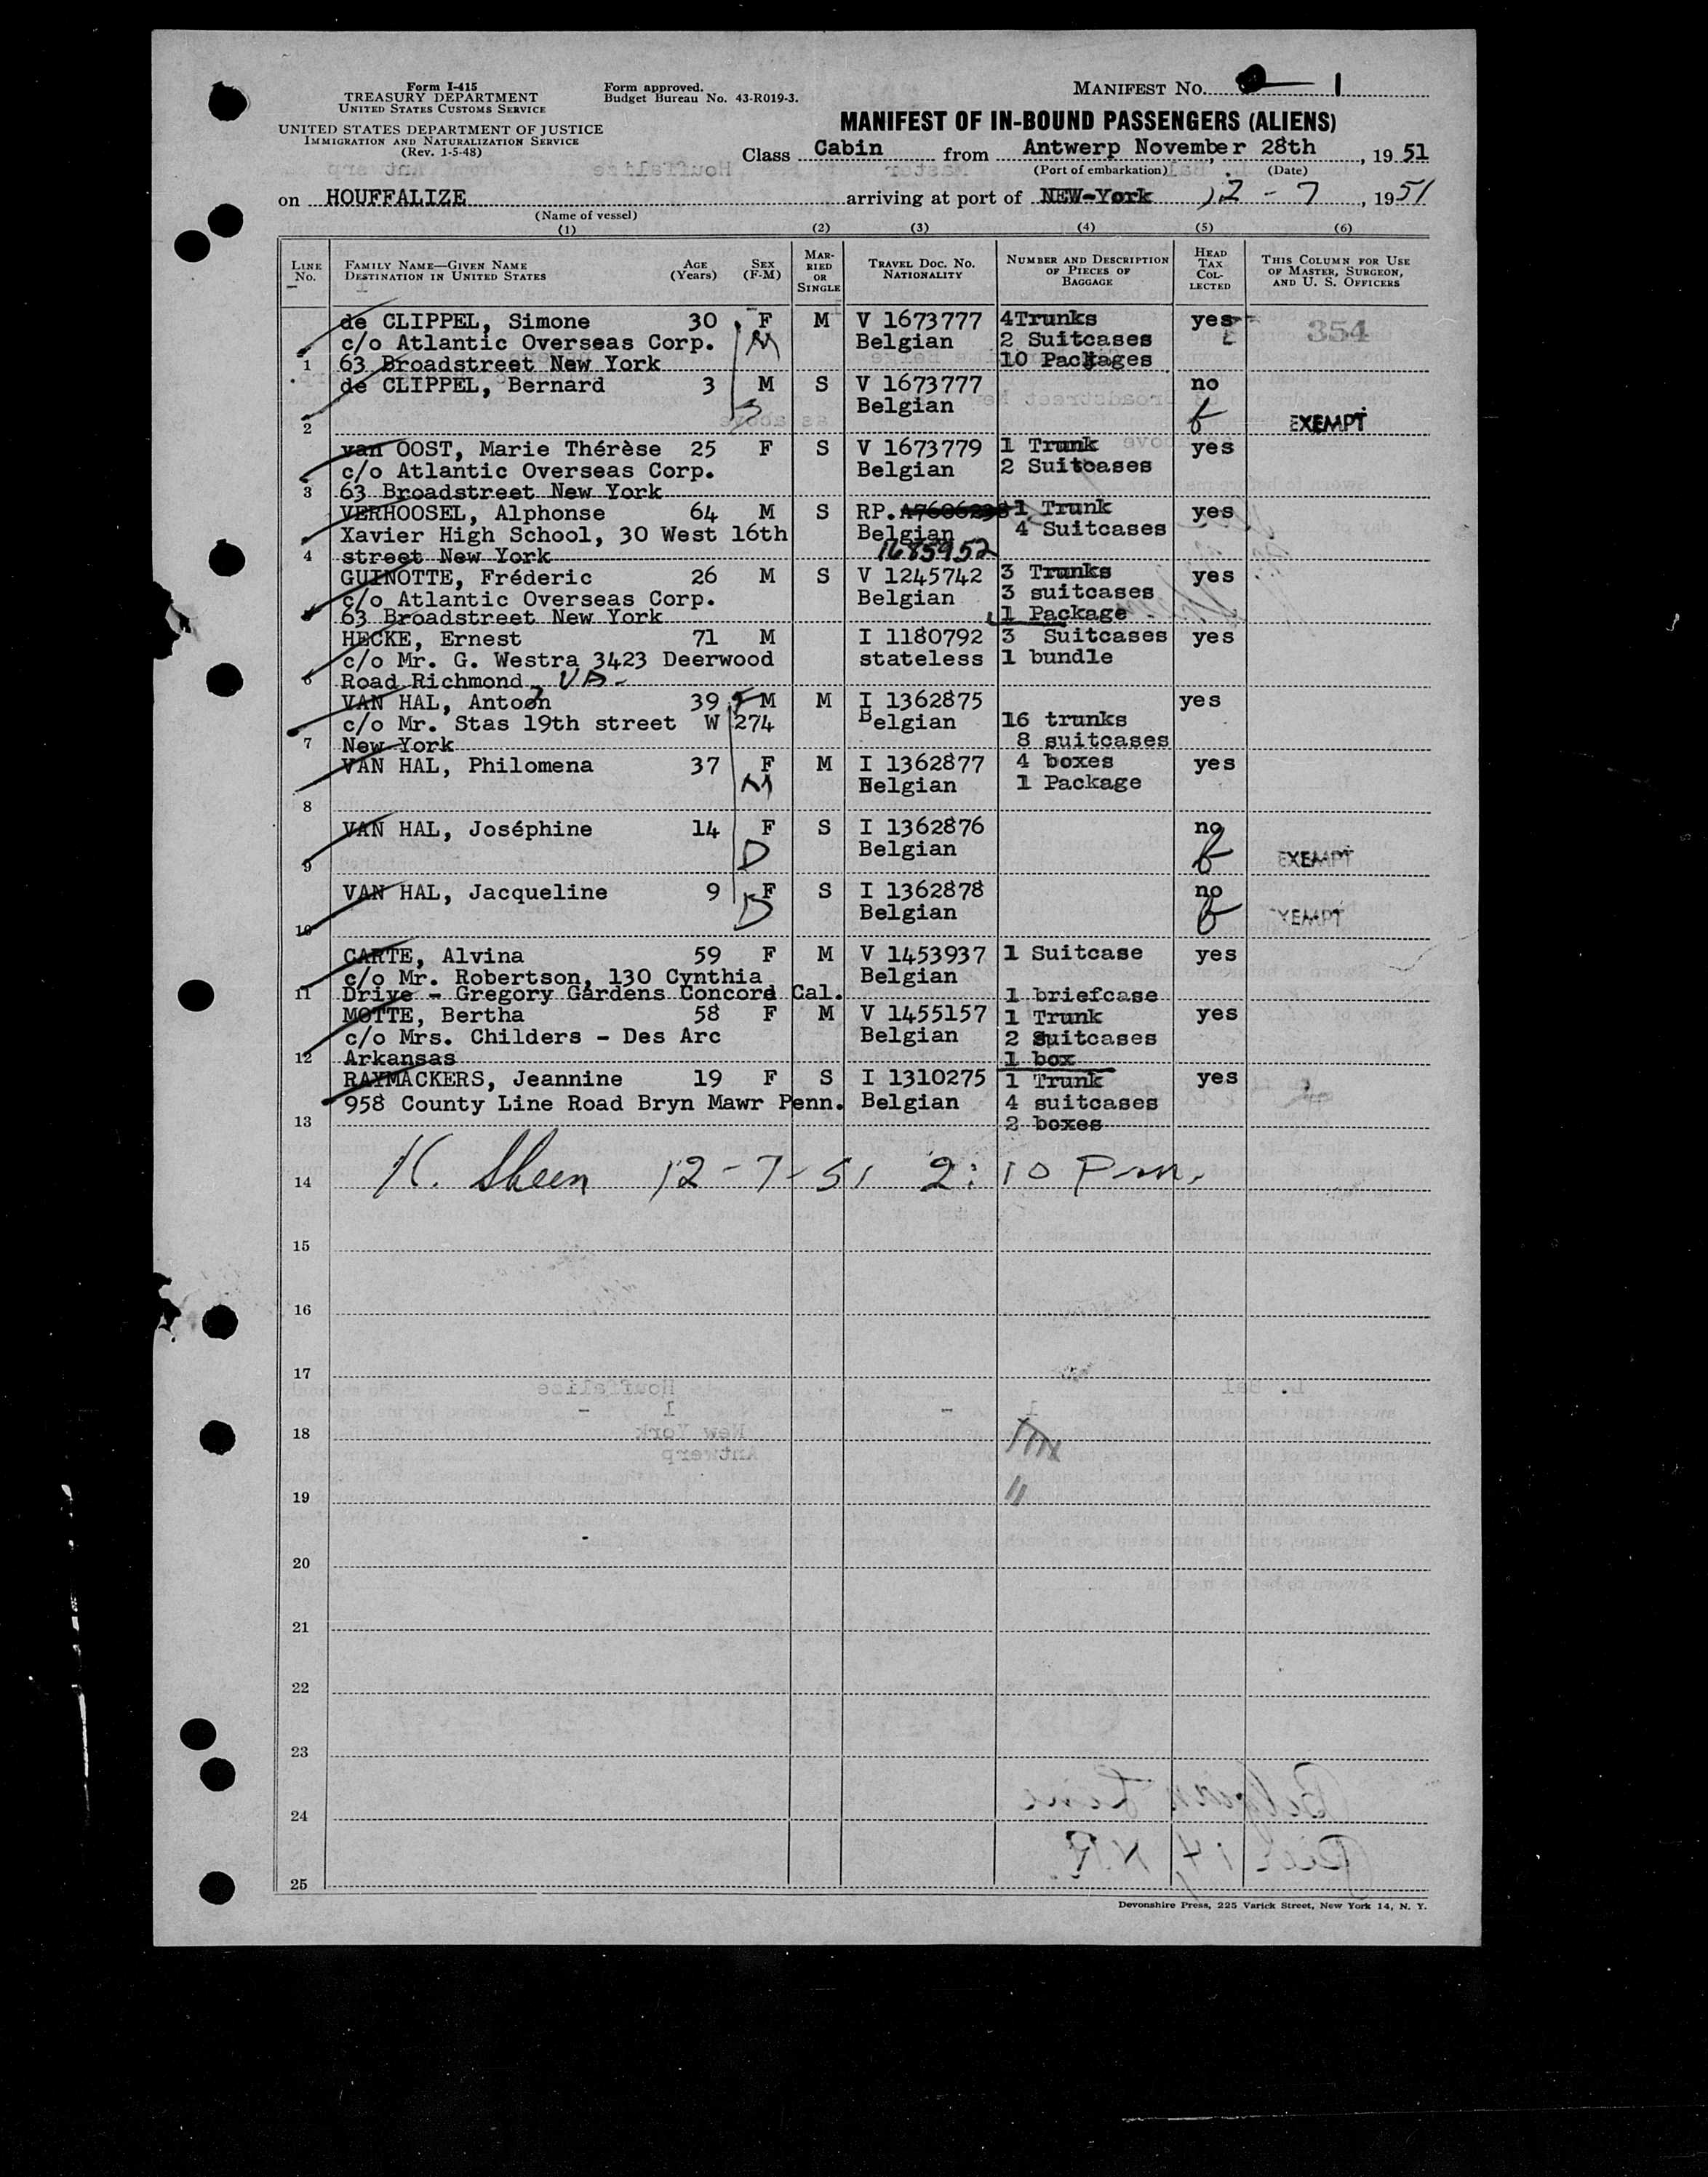 Form I-415
TREASURY DEPARTMENT
UNITED STATES CUSTOMS SERVICE
UNITED STATES DEPARTMENT OF JUSTICE
IMMIGRATION AND NATURALIZATION SERVICE
(Rev. 1-5-48)
Form approved.
Budget Bureau No. 43-R019-3.
MANIFEST NO. 1
MANIFEST OF IN-BOUND PASSENGERS (ALIENS)
Class Cabin from Antwerp November 28th, 1951
(Port of embarkation) (Date)
on HOUFFALIZE arriving at port of NEW-York 12-7, 1951
(Name of vessel)
(1) (2) (3) (4) (5) (6)
LINE NO. FAMILY NAME—GIVEN NAME DESTINATION IN UNITED STATES AGE (Years) SEX (F-M) MARRIED OR SINGLE TRAVEL DOC. NO. NATIONALITY NUMBER AND DESCRIPTION OF PIECES OF BAGGAGE HEAD TAX COLLECTED THIS COLUMN FOR USE OF MASTER, SURGEON, AND U. S. OFFICERS
de CLIPPEL, Simone 30 F M V 1673777 4Trunks yes 354
c/o Atlantic Overseas Corp. M Belgian 2 Suitcases
1 63 Broadstreet New York 10 Packages
de CLIPPEL, Bernard 3 M S V 1673777 no
S Belgian
2 EXEMPT
van OOST, Marie Thérèse 25 F S V 1673779 1 Trunk yes
c/o Atlantic Overseas Corp. Belgian 2 Suitcases
3 63 Broadstreet New York
VERHOOSEL, Alphonse 64 M S RP. A7606238 1 Trunk yes
Xavier High School, 30 West 16th Belgian 4 Suitcases
4 street New York 1685952
GUINOTTE, Fréderic 26 M S V 1245742 3 Trunks yes
c/o Atlantic Overseas Corp. Belgian 3 suitcases
63 Broadstreet New York 1 Package
HECKE, Ernest 71 M I 1180792 3 Suitcases yes
c/o Mr. G. Westra 3423 Deerwood stateless 1 bundle
6 Road Richmond, VA-
VAN HAL, Antoon 39 F M M I 1362875 yes
c/o Mr. Stas 19th street W 274 Belgian 16 trunks
7 New York 8 suitcases
VAN HAL, Philomena 37 F M I 1362877 4 boxes yes
M Belgian 1 Package
8
VAN HAL, Joséphine 14 F S I 1362876 no
D Belgian EXEMPT
9
VAN HAL, Jacqueline 9 F S I 1362878 no
D Belgian EXEMPT
10
CARTE, Alvina 59 F M V 1453937 1 Suitcase yes
c/o Mr. Robertson, 130 Cynthia Belgian
11 Drive - Gregory Gardens Concord Cal. 1 briefcase
MOTTE, Bertha 58 F M V 1455157 1 Trunk yes
c/o Mrs. Childers - Des Arc Belgian 2 suitcases
12 Arkansas 1 box
RAYMACKERS, Jeannine 19 F S I 1310275 1 Trunk yes
958 County Line Road Bryn Mawr Penn. Belgian 4 suitcases
13 2 boxes
K. Sheen 12-7-51 2:10 Pm.
14
15
16
17
18
19
20
21
22
23
24
25
Devonshire Press, 225 Varick Street, New York 14, N. Y.